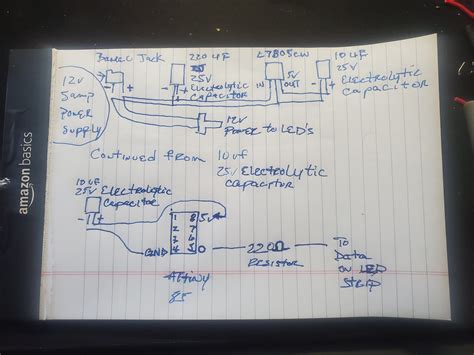 Barrel Jack
220 uF
25V
Electrolytic
Capacitor
L7805CW
IN
5V
OUT
10 uF
25V
Electrolytic
Capacitor
12V
5amp
Power
Supply
- +
- +
- +
12V
Power to LED's
Continued from 10uf
25V Electrolytic
capacitor
10 uF
25V Electrolytic
Capacitor
- +
1 8 5V
2 7
3 6
4 5
GND
Attiny
85
220Ω
Resistor
To
Data
on LED
Strip
amazon basics